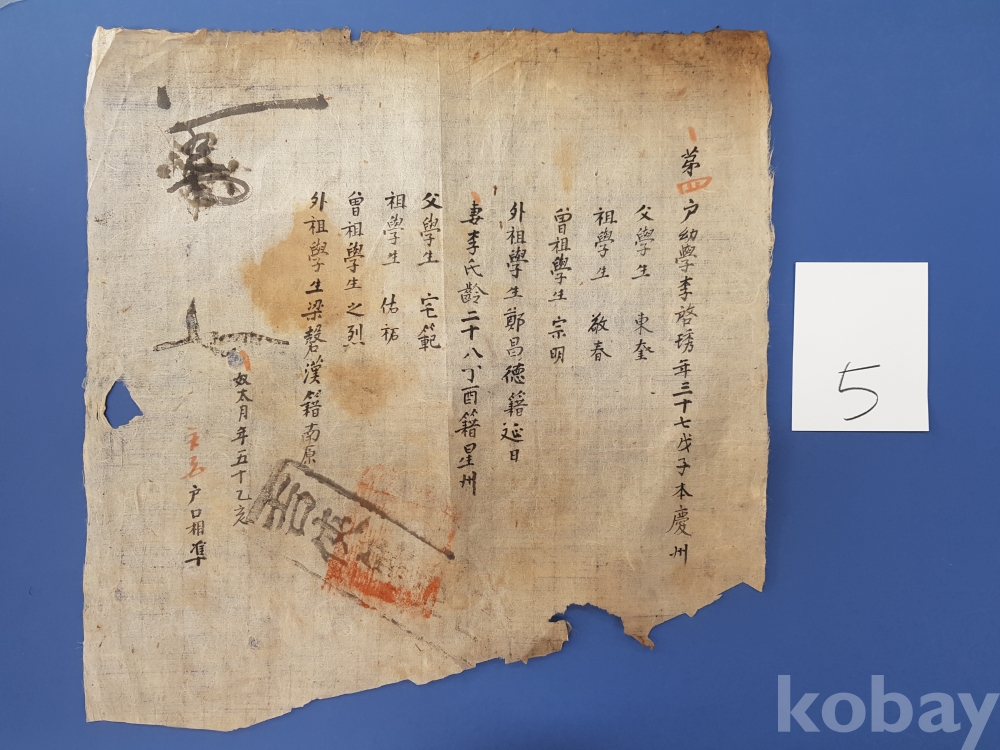 第四戶幼學李啓琇年三十七戊子本慶州
父學生 東奎
祖學生 敬春
曾祖學生宗明
外祖學生鄭昌德籍延日
妻李氏齡二十八丁酉籍星州
父學生 宅範
祖學生 佑祏
曾祖學生之烈
外祖學生梁磬漢籍南原
奴太月年五十乙亥
戶口相準
5
kobay